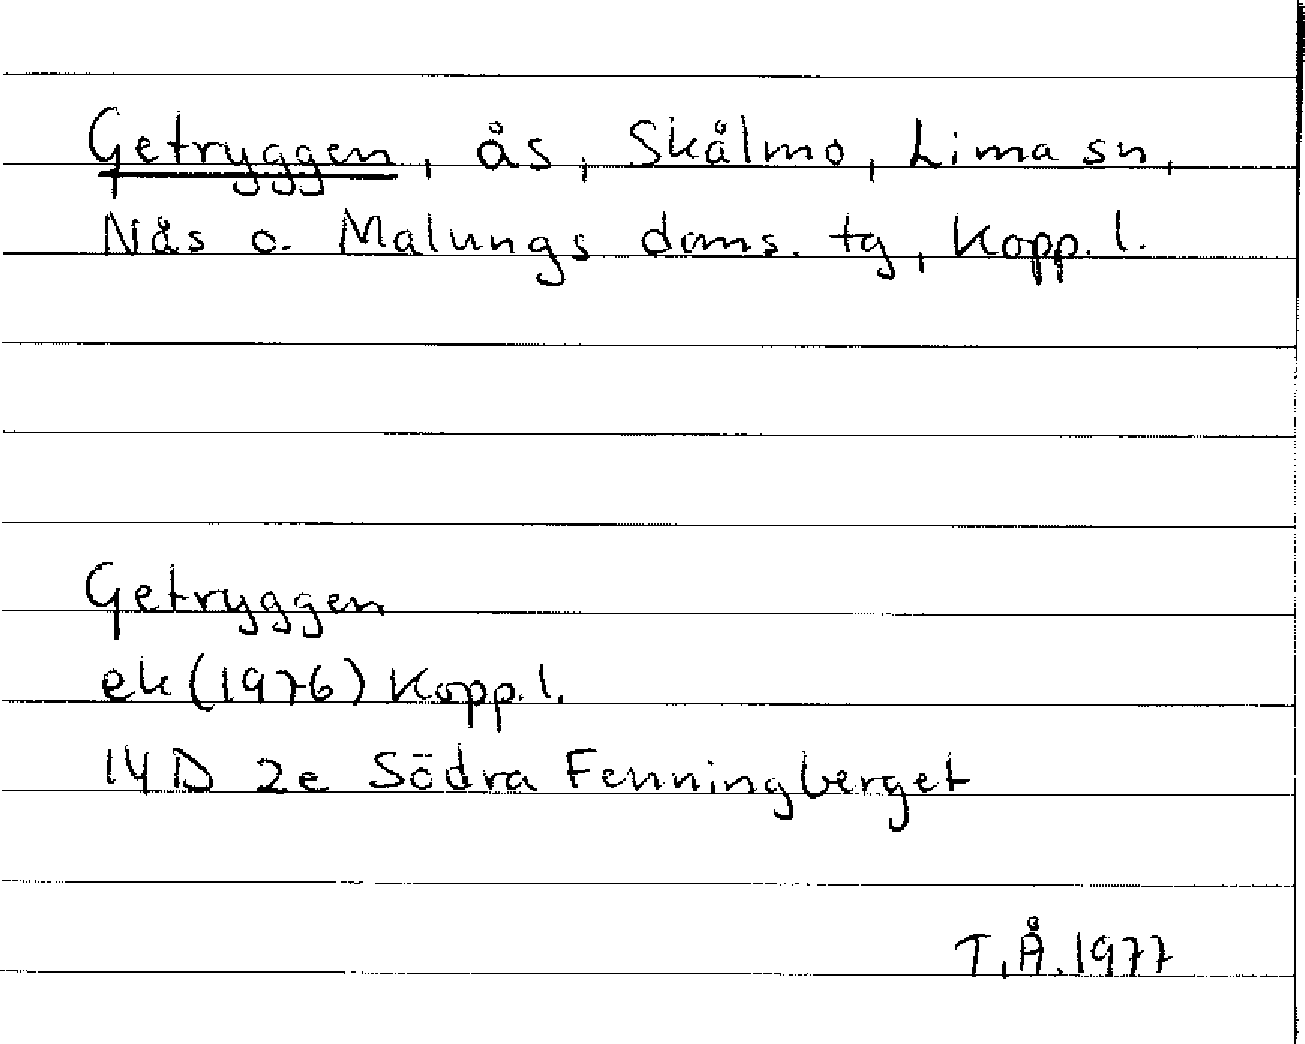 Getryggen, ås, Skålmo, Lima sn,
Nås o. Malungs doms. tg, Kopp. l.
Getryggen
ek (1976) Kopp. l.
14D 2e Södra Fenningberget
T.Å. 1977